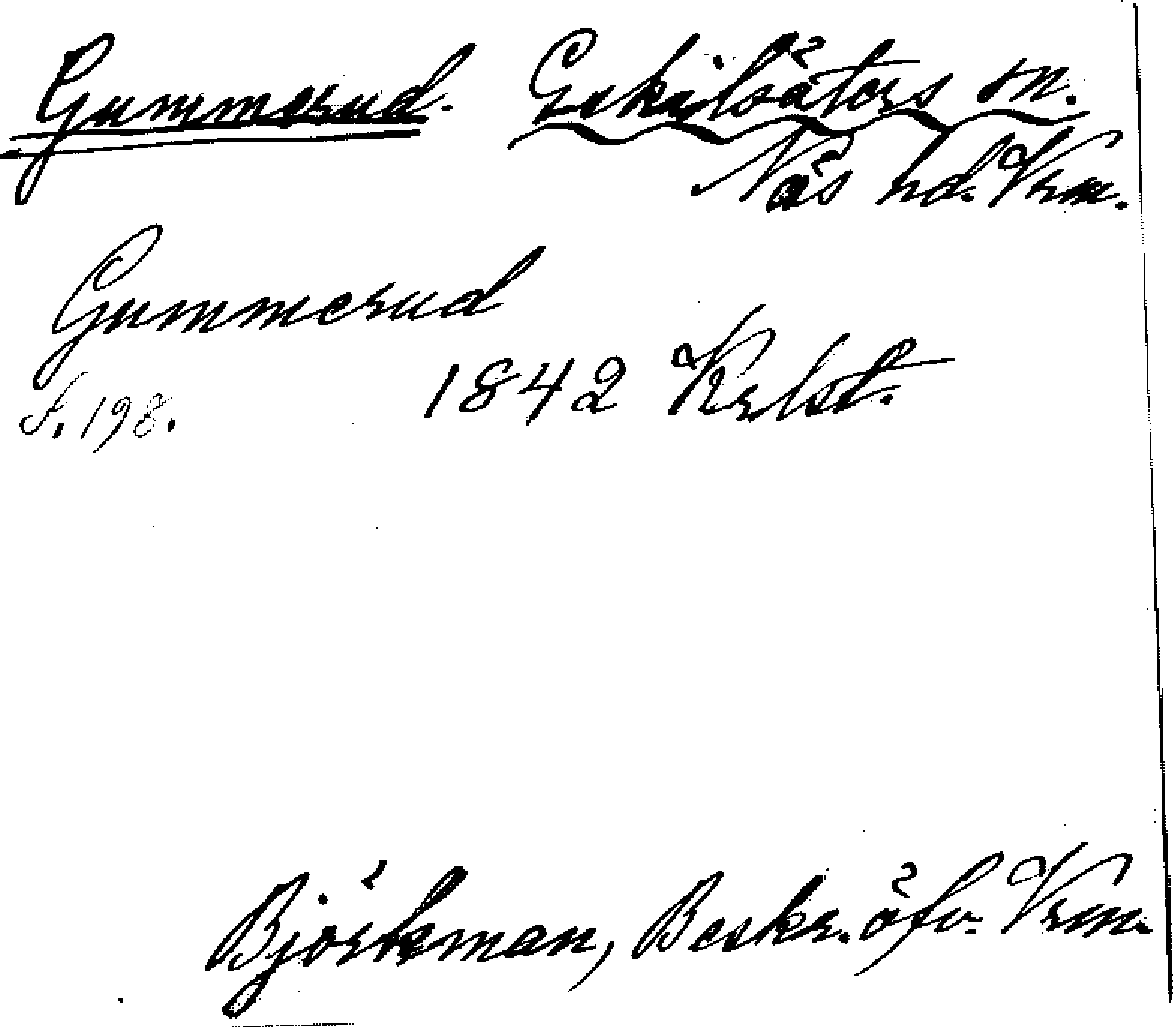 Gummerud. Eskilsäters sn.
Näs hd. Vrm.
Gummerud
s. 198. 1842 Krlst.
Björkman, Beskr. öfv. Vrm.